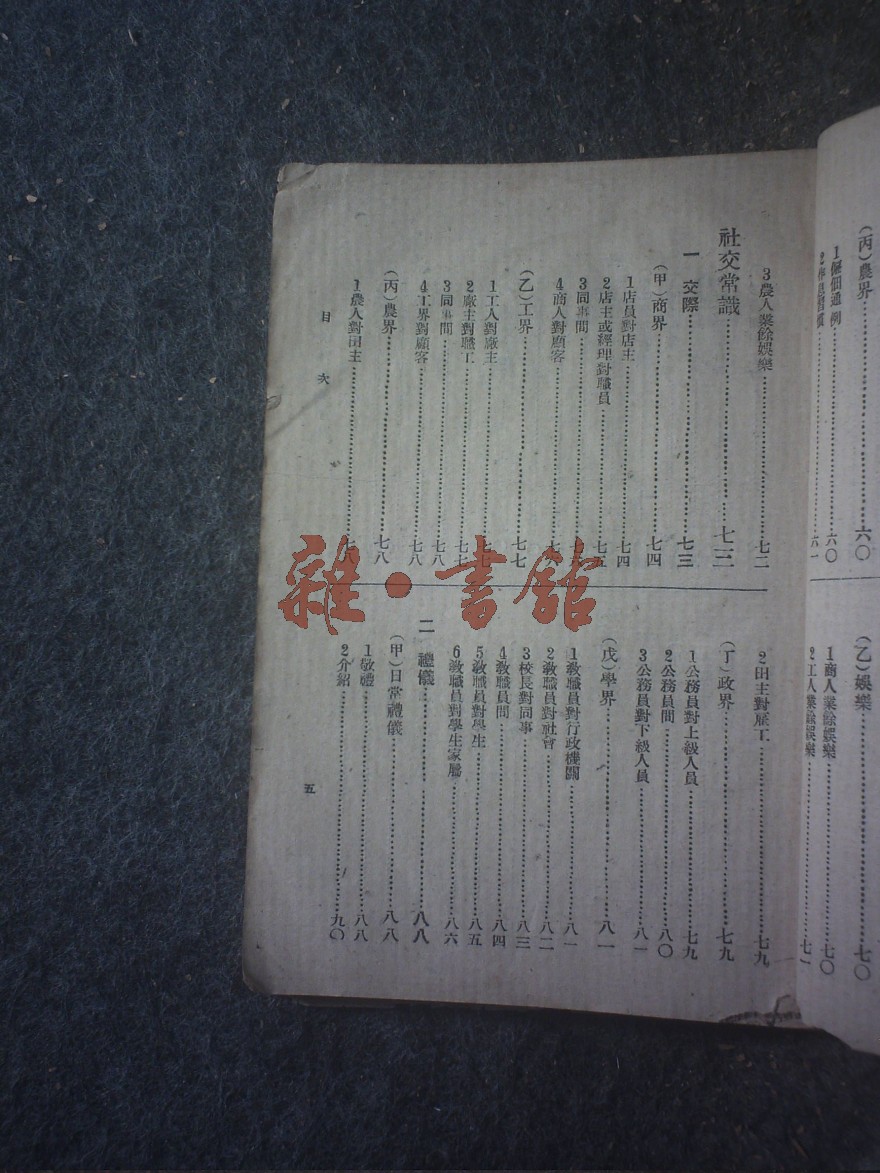 (丙)農界……六〇
1僱佃通例……六〇
(乙)娛樂……七〇
1商人業餘娛樂……七〇
2工人業餘娛樂……七一
3農人業餘娛樂……七二
社交常識……七三
一 交際……七三
(甲)商界……七四
1店員對店主……七四
2店主或經理對職員……七五
3同事間……七六
4商人對顧客……七六
(乙)工界……七七
1工人對廠主……七七
2廠主對職工……七七
3同事間……七八
4工界對顧客……七八
(丙)農界……七八
1農人對田主……七八
2田主對雇工……七九
(丁)政界……七九
1公務員對上級人員……七九
2公務員間……八〇
3公務員對下級人員……八一
(戊)學界……八一
1教職員對行政機關……八一
2教職員對社會……八二
3校長對同事……八三
4教職員間……八四
5教職員對學生……八五
6教職員對學生家屬……八六
二 禮儀……八八
(甲)日常禮儀……八八
1敬禮……八八
2介紹……九〇
目次
五
雜·書館